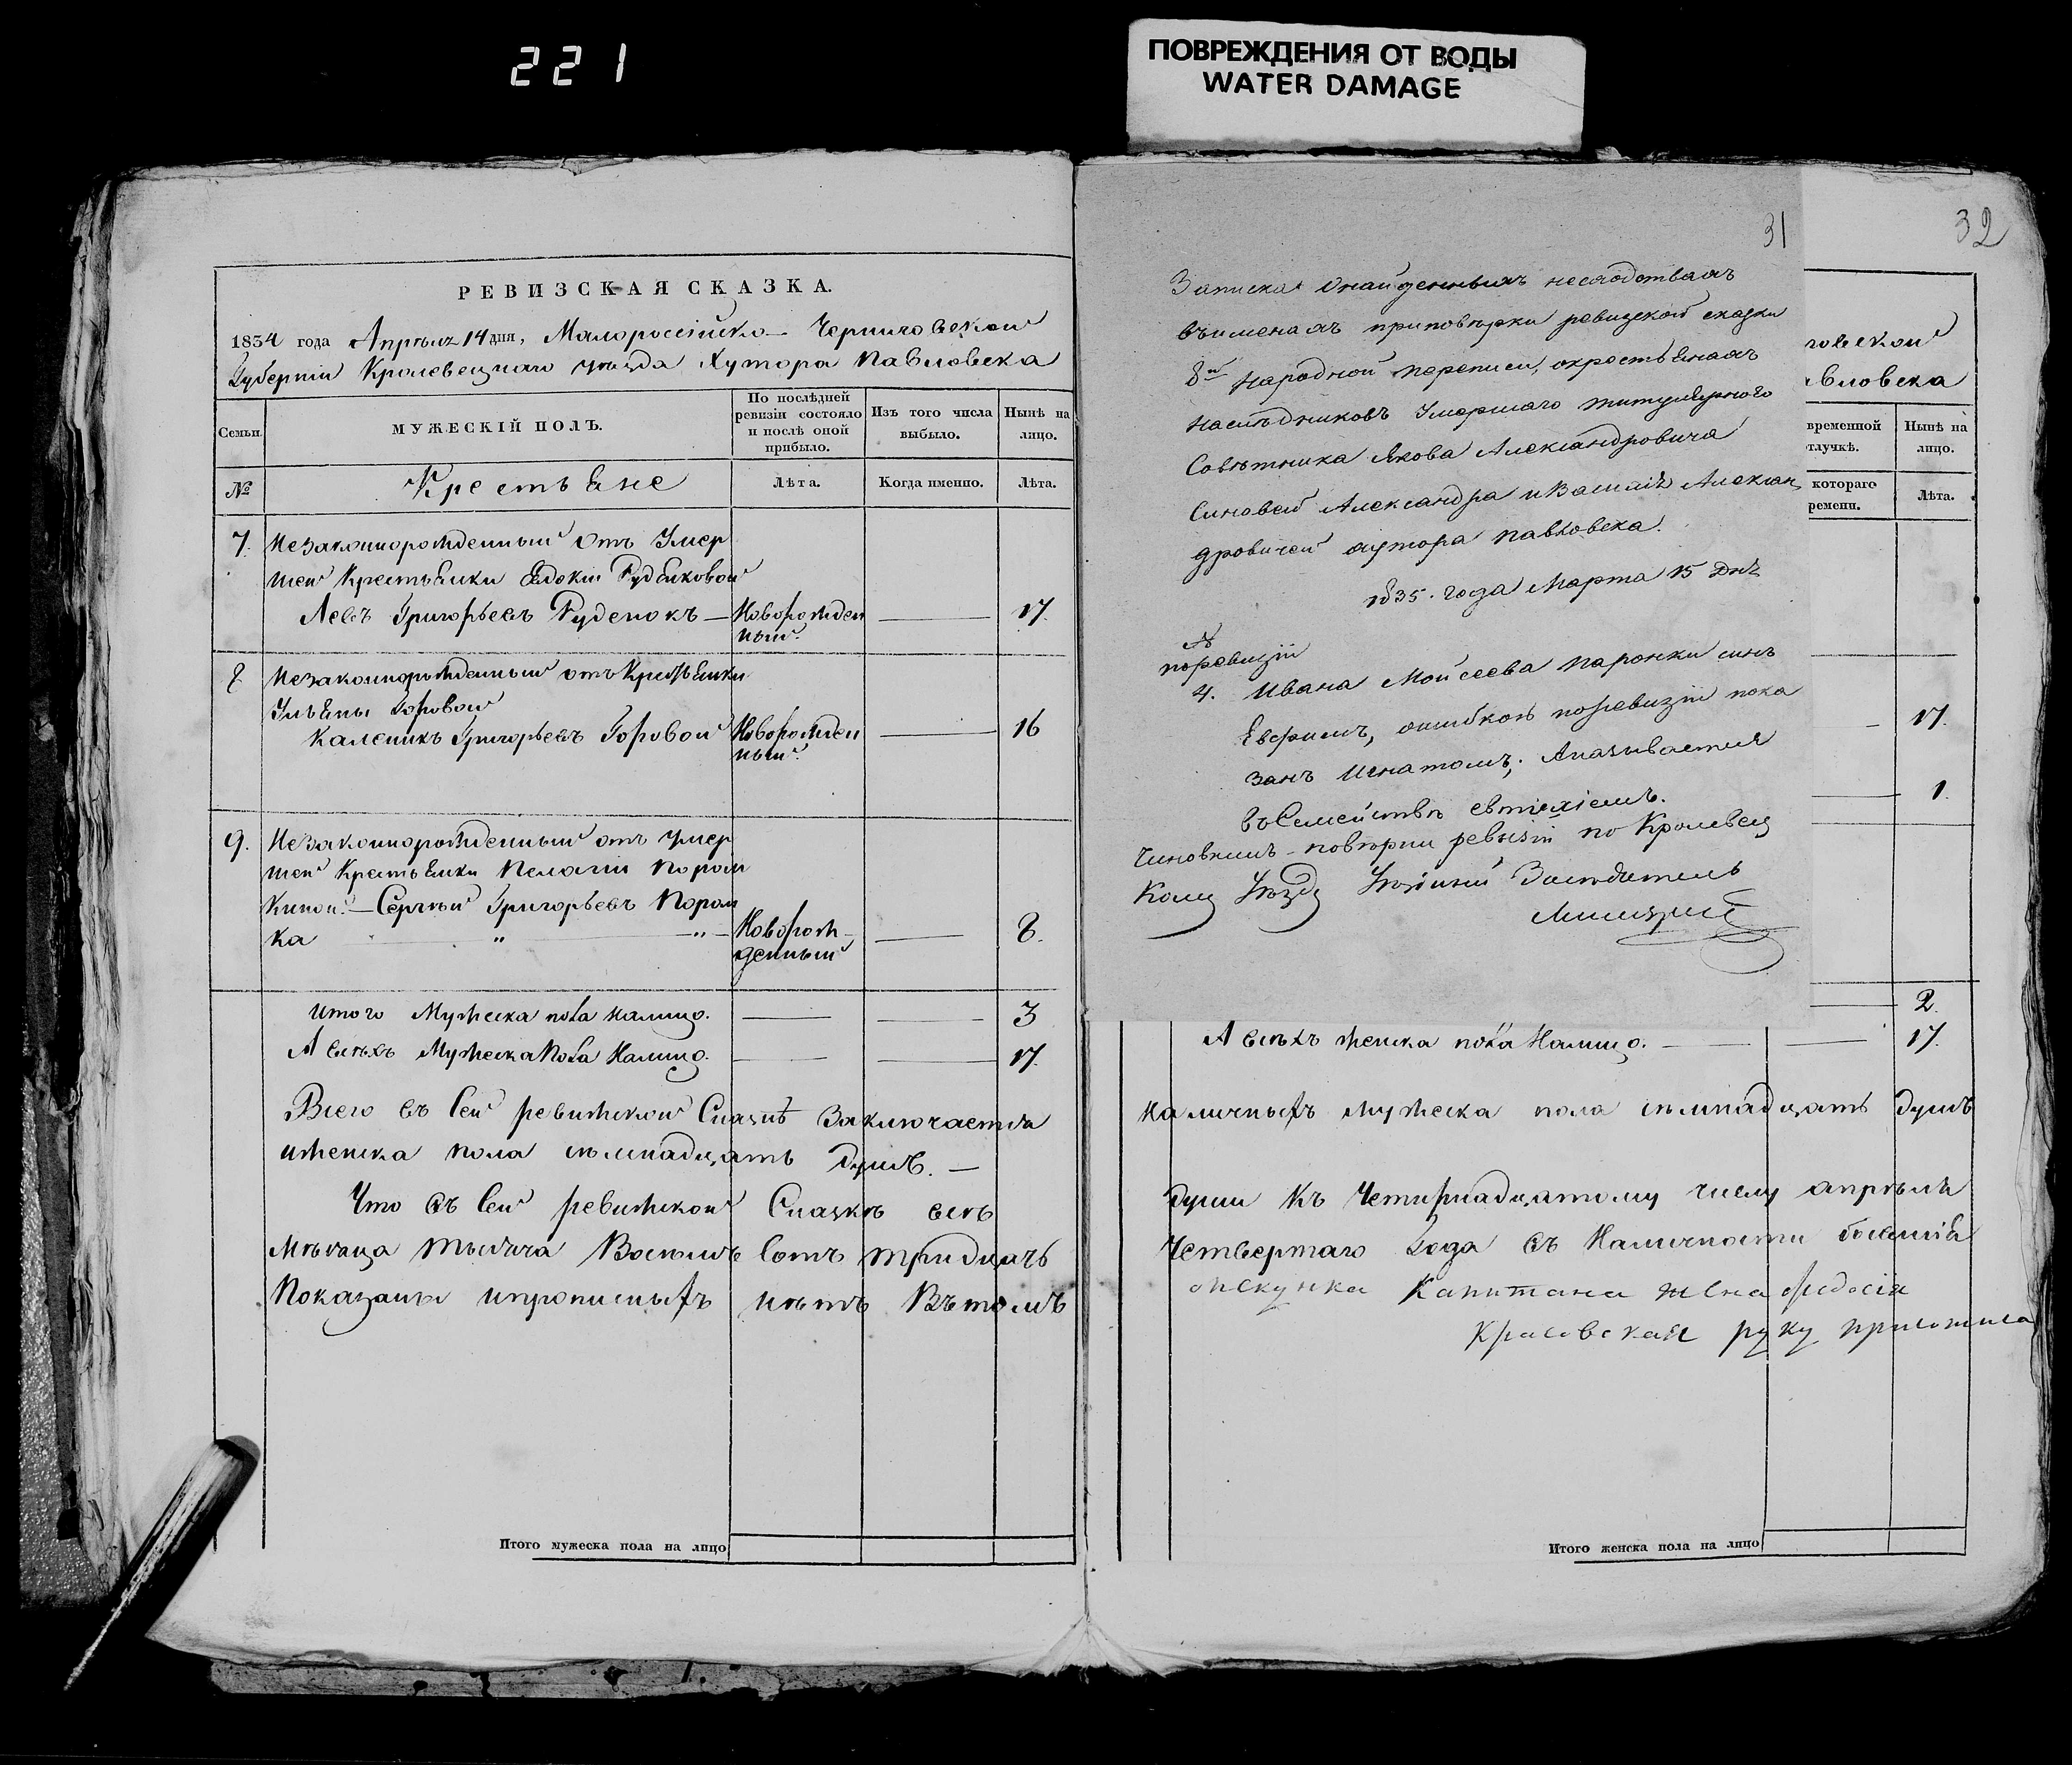 221
ПОВРЕЖДЕНИЯ ОТ ВОДЫ
WATER DAMAGE
РЕВИЗСКАЯ СКАЗКА.
1834 года Апрѣля 14 дня, Малороссійско- Черниговской
Губерніи Кролевецкаго уѣзда Хутора Павловска
Семьи
МУЖЕСКІЙ ПОЛЪ.
По послѣдней
ревизіи состояло
и послѣ оной
прибыло.
Изъ того числа
выбыло.
Нынѣ на
лицо.
№
Крестьяне
Лѣта.
Когда именно.
Лѣта.
7. Незаконнорожденный отъ Умер
шей Крестьянки Евдокіи Руденковой
Левъ Григорьевъ Руденокъ — Новорожден 17.
ный.
8 Незаконнорожденный отъ Крестьянки
Ульяны Горовой
Каленикъ Григорьевъ Горовой Новорожден 16
ный.
9. Незаконнорожденный отъ умер
шей Крестьянки Пелагіи Порон
киной. — Сергѣй Григорьевъ Порон
ка " " — Новорож- 8.
денный
Итого Мужеска пола налицо. 3
А всѣхъ Мужеска Пола Налицо. 17.
Всего въ Сей ревижской Сказкѣ Заключается
иженска пола семнадцать душъ. —
Что въ Сей ревижской Сказкѣ всѣ
Мѣсяца тысяча Восемь Сотъ тридцать
Показаны ипрописныхъ нѣтъ Вътомъ
Итого мужеска пола на лицо
31
Записка Онайденныхъ несходствахъ
въименахъ приповѣрки ревизской сказки
8й народной переписи, окрестьянахъ
наслѣдниковъ Умершаго титулярного
Совѣтника Якова Александровича
Синовей Александра иВасилія Алексан
дровичей хутора Павловска.
1835. года Марта 15 Дня
№
поревизіи
4. Ивана Мойсеева Паронки синъ
Ефримъ, ошибкою поревизіи пока
занъ Игнатомъ; Аназивается
въСемействѣ евтихіемъ.
Чиновникъ повѣрки ревизіи по Кролевец
кому Уѣзду Засѣдатель
32
говской
авловска
временной
отлучкѣ.
Нынѣ на
лицо.
котораго
времени.
Лѣта.
17.
1.
2.
А всѣхъ женска пола Налицо. 17.
наличныхъ мужеска пола семнадцать душъ
души къ Четырнадцатому числу апрѣля
Четвертаго Года въ Наличности бывшія
опекунка Капитана жена Федосія
Красовская руку приложила
Итого женска пола на лицо